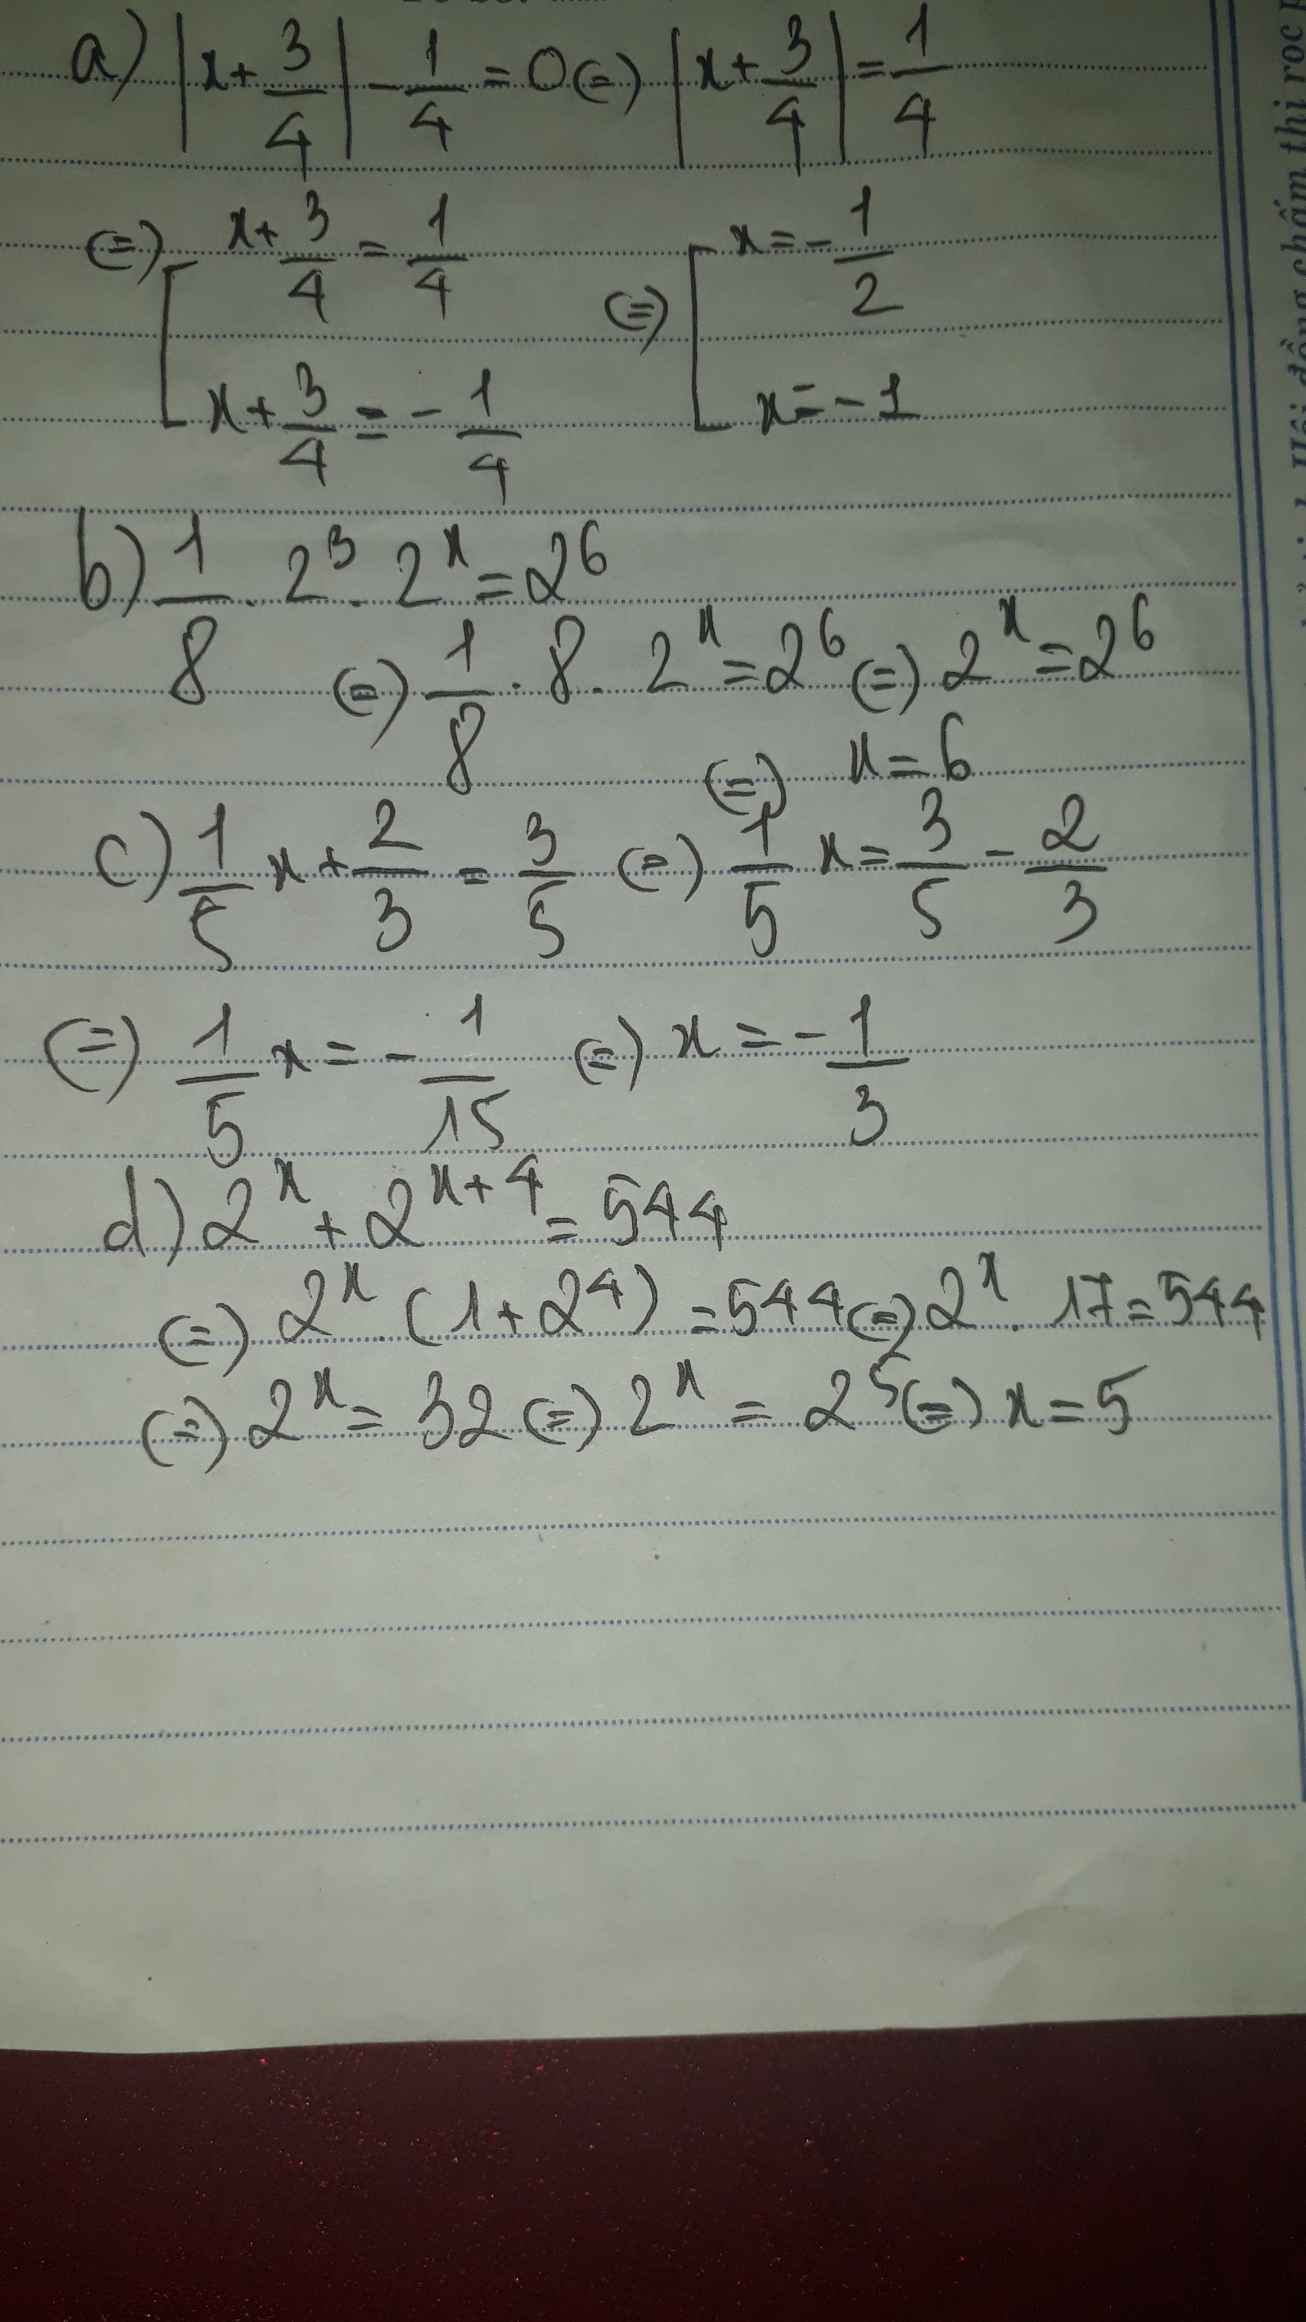 a) |x + 3/4| - 1/4 = 0 (=) |x + 3/4| = 1/4
(=) [ x + 3/4 = 1/4 (=) [ x = -1/2
x + 3/4 = -1/4 x = -1
b) 1/8 . 2^3 . 2^x = 2^6
(=) 1/8 . 8 . 2^x = 2^6 (=) 2^x = 2^6
(=) x = 6
c) 1/5 x + 2/3 = 3/5 (=) 1/5 x = 3/5 - 2/3
(=) 1/5 x = -1/15 (=) x = -1/3
d) 2^x + 2^(x+4) = 544
(=) 2^x . (1 + 2^4) = 544 (=) 2^x . 17 = 544
(=) 2^x = 32 (=) 2^x = 2^5 (=) x = 5
đồng chấm thi rọc